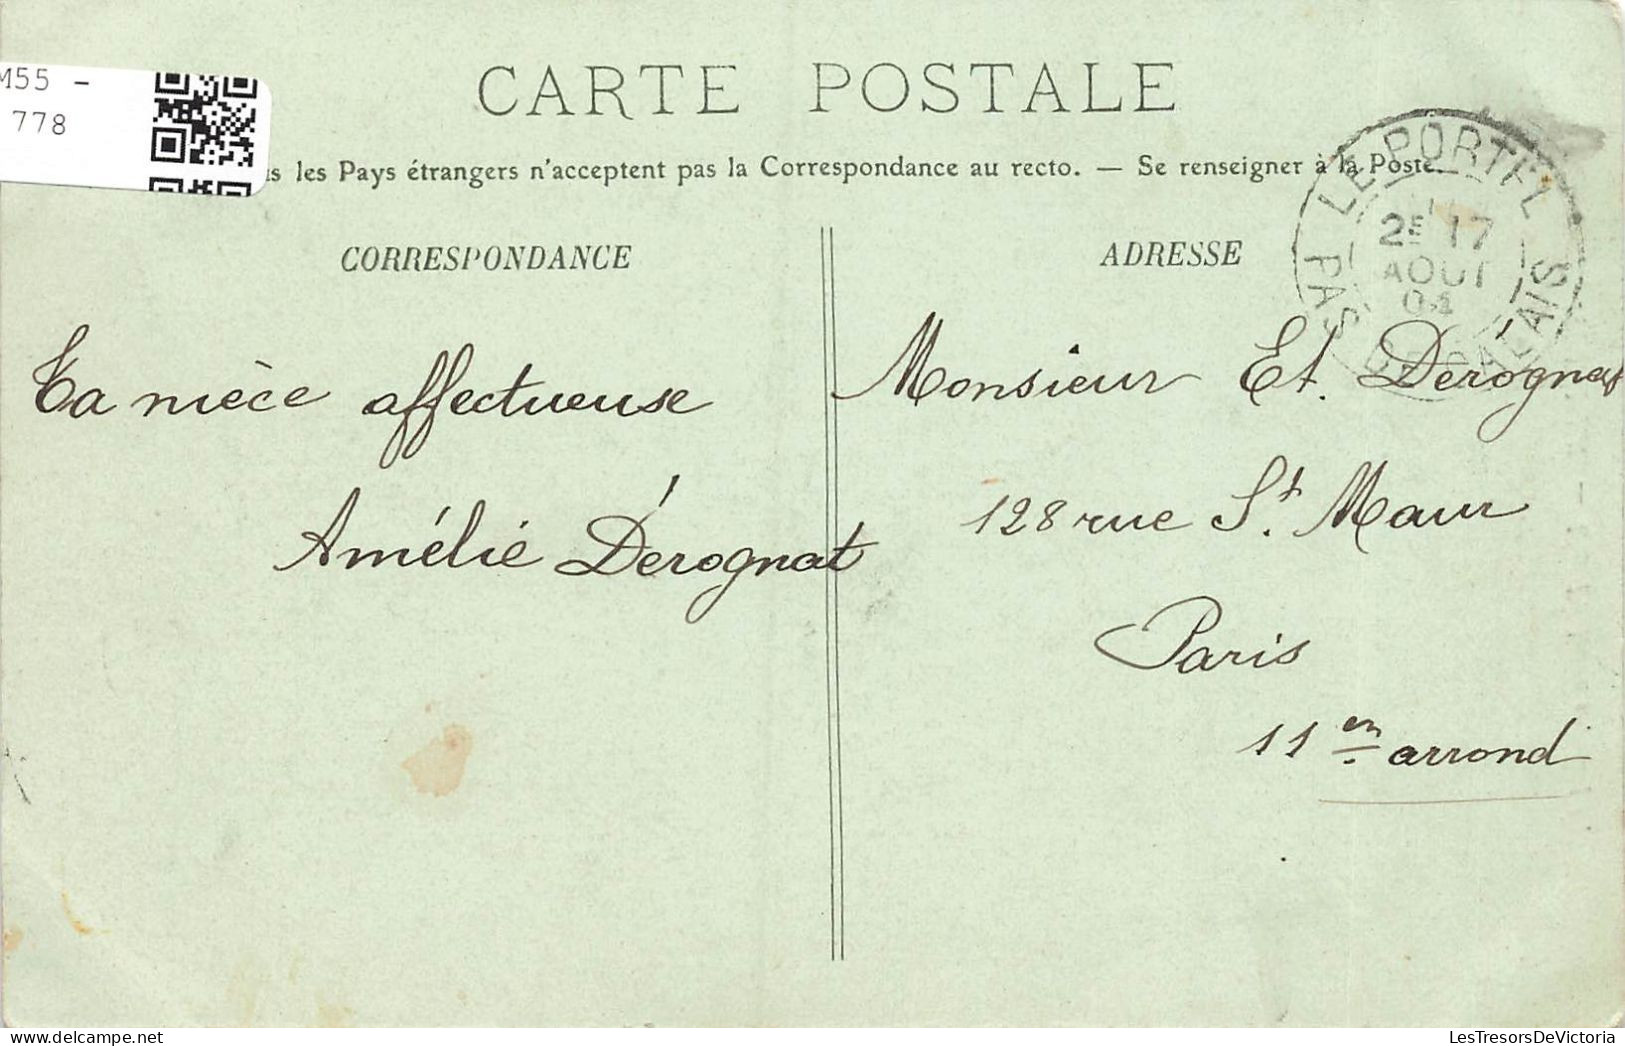 M55 -
778
CARTE POSTALE
les Pays étrangers n'acceptent pas la Correspondance au recto. — Se renseigner à la Poste.
LE PORTEL
2E 17
AOUT
04
PAS DE CALAIS
CORRESPONDANCE
Ta nièce affectueuse
Amélie Dérognat
ADRESSE
Monsieur Et. Dérognat
128 rue St. Maur
Paris
11em arrond
LesTresorsDeVictoria.com